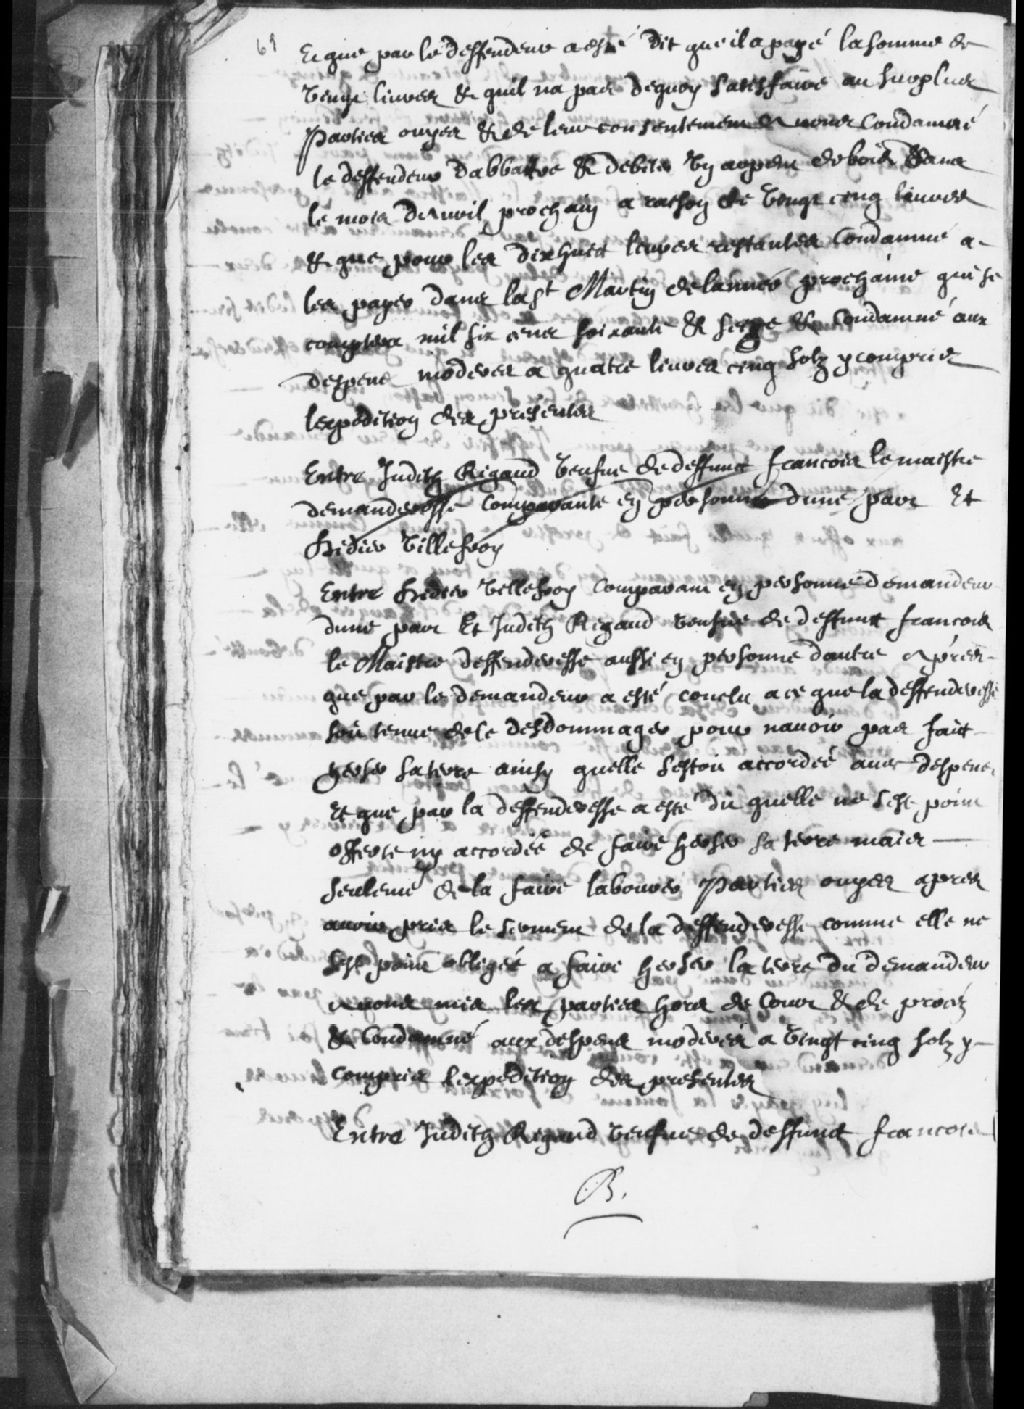 61
Et que par le deffendeur a esté dit que il a payé la somme de
vingt livres & quil na pas dequoy satisfaire au surplus
Parties ouyes & de leur consentement avons Condamné
le deffendeur dabbattre & debiter un arpent de bois dans
le mois davril prochain a raison de vingt cinq livres
& que pour les dixhuict livres restantes Condamné a
les payer dans la St Martin de lannée prochaine qui se
comptera mil six cens soixante & seize & Condamné aux
despens moderez a quatre livres cinq solz y compris
lexpedition des presentes
Entre Judith Rigaud veufue de deffunct francois le maistre
demanderesse Comparante en personne dune part Et
Isidier Villefroy
Entre Isidier Villefroy Comparant en personne demandeur
dune part Et Judith Rigaud veufue de deffunct francois
le Maistre deffenderesse aussi en personne dautre Apres
que par le demandeur a esté conclu a ce que la deffenderesse
soit tenue de le desdommager pour navoir pas fait
herser sa terre ainsy quelle sestoit accordée avec despens
Et que par la deffenderesse a esté dit quelle ne sest point
offerte ny accordée de faire herser sa terre mais
seulemt de la faire labourer Parties ouyes apres
avoir pris le serment de la deffenderesse comme elle ne
sest point obligée a faire herser la terre du demandeur
avons mis les parties hors de Cour & de procés
& Condamné aux despens moderés a vingt cinq solz y
compris lexpedition des presentes
Entre Judith Rigaud veufue de deffunct francois
B.